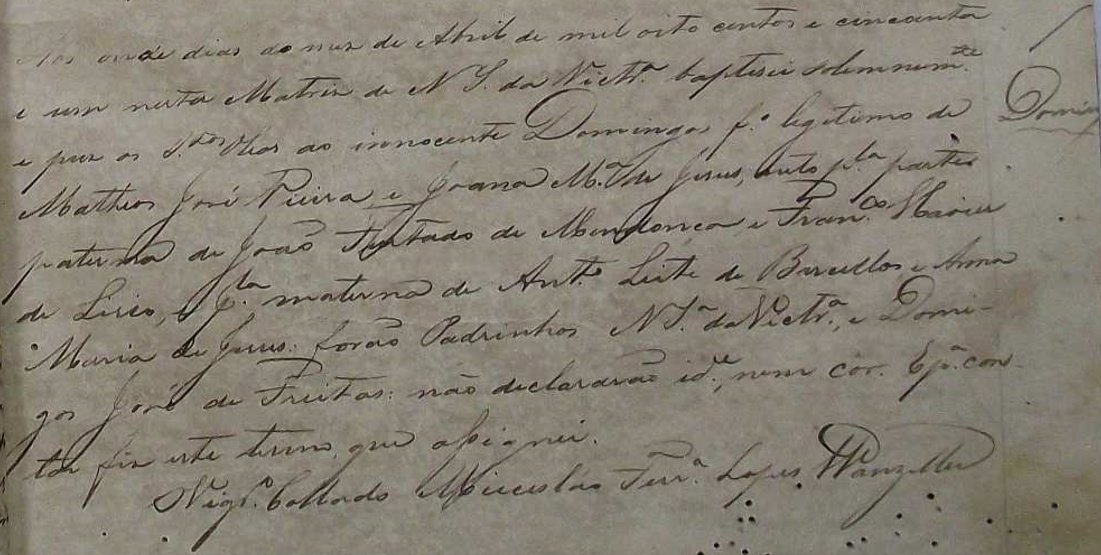 Aos onze dias do mez de Abril de mil oito centos e cincoenta
e um nesta Matriz de N S. da Victr.ª baptisei solemnem.te
e puz os S.tos Oleos ao innocente Domingos f.º legitimo de
Domin
Matheos José Vieira e Joana M.ª de Jesus, neto p.la parte
paterna de João Furtado de Mendonça e Fran.ca Xavier
de Lirio, e p.la materna de Ant.º Leite de Barcellos e Anna
Maria de Jesus: forão Padrinhos N S.ª da Victr.ª, e Domi-
gos José de Freitas: não declararão id.e, nem cor. E p.ª con-
tar fiz este termo, que assignei.
Vigr.º Collado Miceslao Ferr.ª Lopes Wanzeller